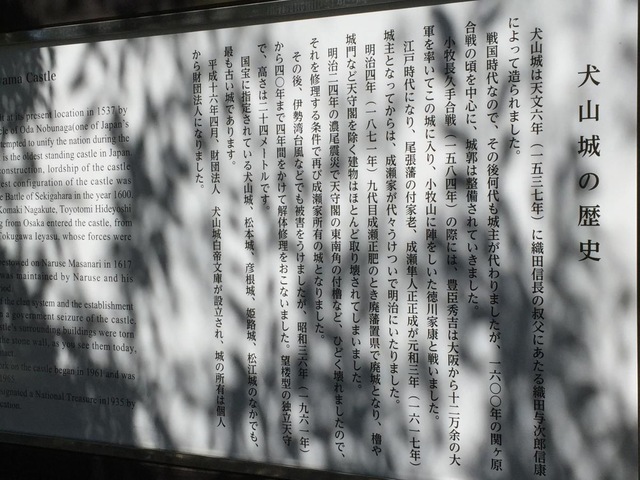 犬山城の歴史
犬山城は天文六年（一五三七年）に織田信長の叔父にあたる織田与次郎信康
によって造られました。
戦国時代なので、その後何代も城主が代わりましたが、一六〇〇年の関ヶ原
合戦の頃を中心に、城郭は整備されていきました。
小牧長久手合戦（一五八四年）の際には、豊臣秀吉は大阪から十二万余の大
軍を率いてこの城に入り、小牧山に陣をしいた徳川家康と戦いました。
江戸時代になり、尾張藩の付家老、成瀬隼人正正成が元和三年（一六一七年）
城主となってからは、成瀬家が代々うけついで明治にいたりました。
明治四年（一八七一年）九代目成瀬正肥のとき廃藩置県で廃城となり、櫓や
城門など天守閣を除く建物はほとんど取り壊されてしまいました。
明治二四年の濃尾震災で天守閣の東南角の付櫓など、ひどく壊れましたので、
それを修理する条件で再び成瀬家所有の城となりました。
その後、伊勢湾台風などでも被害をうけましたが、昭和三六年（一九六一年）
から四〇年まで四年間をかけて解体修理をおこないました。望楼型の独立天守
で、高さは二十四メートルです。
国宝に指定されている犬山城、松本城、彦根城、姫路城、松江城のなかでも、
最も古い城であります。
平成十六年四月、財団法人 犬山城白帝文庫が設立され、城の所有は個人
から財団法人になりました。
yama Castle
at its present location in 1537 by
cle of Oda Nobunaga(one of Japan's
attempted to unify the nation during the
is the oldest standing castle in Japan
construction, lordship of the castle
est configuration of the castle was
Battle of Sekigahara in the year 1600.
Komaki Nagakute, Toyotomi Hideyoshi
from Osaka entered the castle, from
Tokugawa Ieyasu, whose forces were
bestowed on Naruse Masanari in 1617
was maintained by Naruse and his
od.
of the clan system and the establishment
a government seizure of the castle.
tle's surrounding buildings were torn
the stone wall, as you see them today,
mar.
ork on the castle began in 1961 and was
1965
esignated a National Treasure in 1935 by
cation.